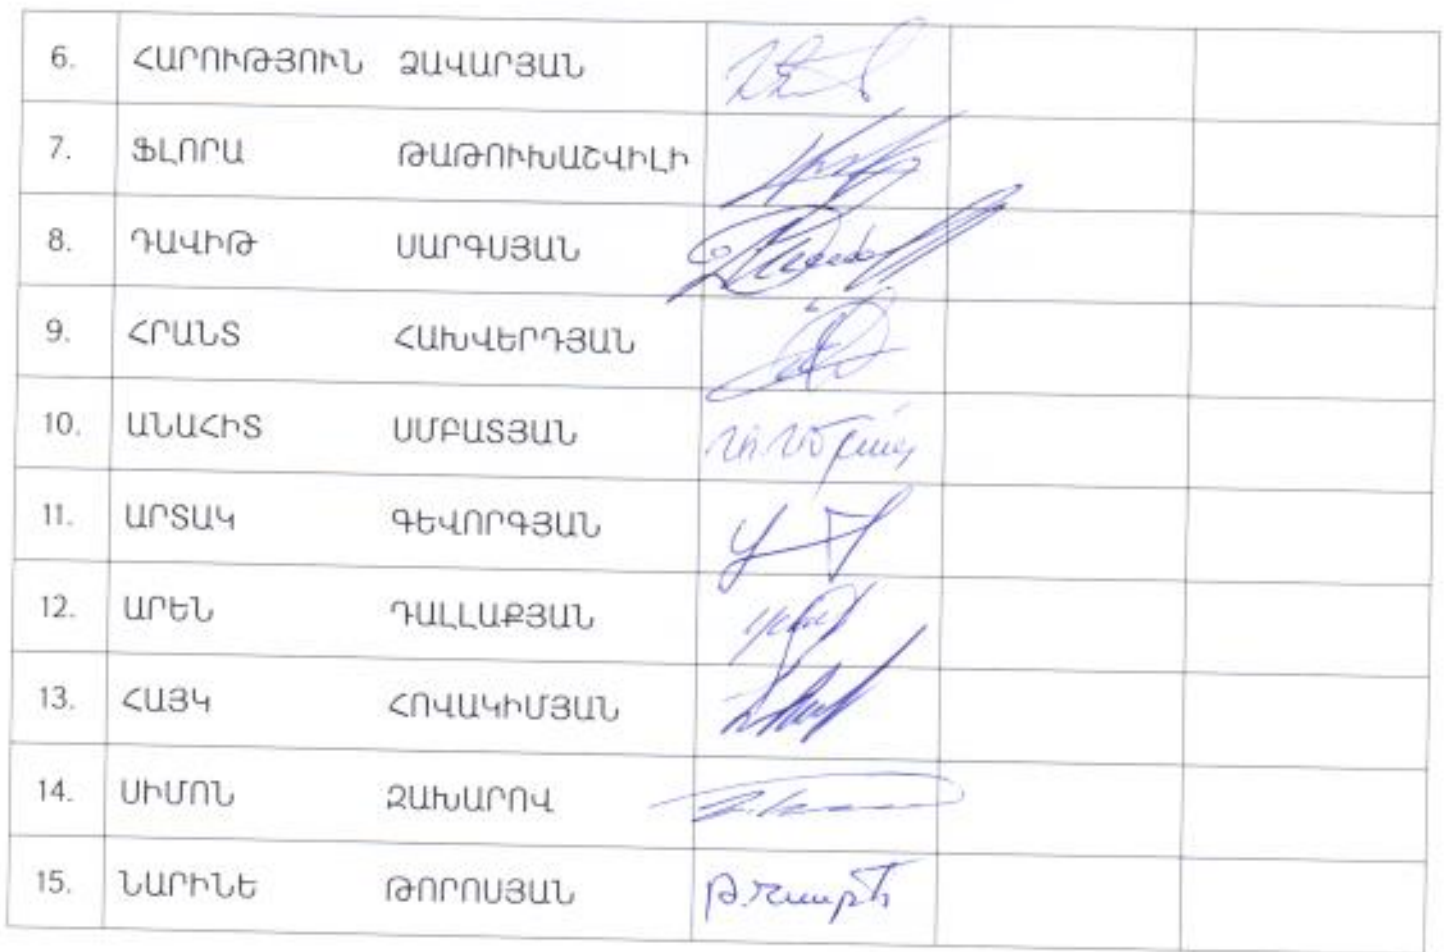 6. ՀԱՐՈՒԹՅՈՒՆ ՁԱՎԱՐՅԱՆ
7. ՖԼՈՐԱ ԹԱԹՈՒԽԱՇՎԻԼԻ
8. ԴԱՎԻԹ ՍԱՐԳՍՅԱՆ
9. ՀՐԱՆՏ ՀԱԽՎԵՐԴՅԱՆ
10. ԱՆԱՀԻՏ ՍՄԲԱՏՅԱՆ
11. ԱՐՏԱԿ ԳԵՎՈՐԳՅԱՆ
12. ԱՐԵՆ ԴԱԼԼԱՔՅԱՆ
13. ՀԱՅԿ ՀՈՎԱԿԻՄՅԱՆ
14. ՍԻՄՈՆ ԶԱԽԱՐՈՎ
15. ՆԱՐԻՆԵ ԹՈՐՈՍՅԱՆ